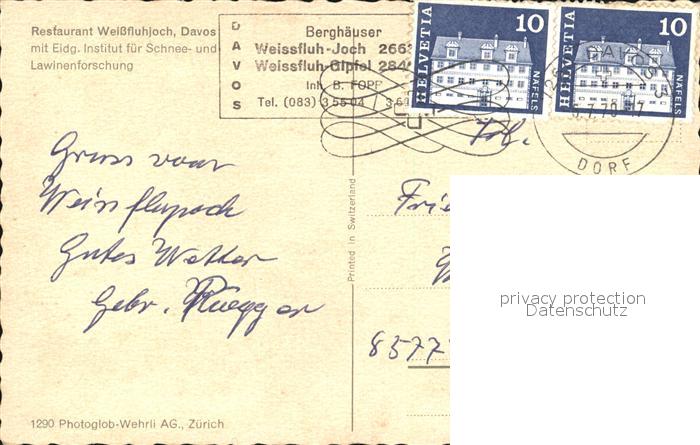 Restaurant Weißfluhjoch, Davos
mit Eidg. Institut für Schnee- und
Lawinenforschung
DAVOS
Berghäuser
Weissfluh-Joch 266
Weissfluh-Gipfel 284
Inh. B. FOPP
Tel. (083) 3 55 04 / 3
HELVETIA
10
NÄFELS
HELVETIA
10
NÄFELS
DAVOS
DORF
Gruss vom
Weissfluhjoch
Gutes Wetter
Gebr. Rüegger
Printed in Switzerland
Fri
8577
privacy protection
Datenschutz
1290 Photoglob-Wehrli AG., Zürich